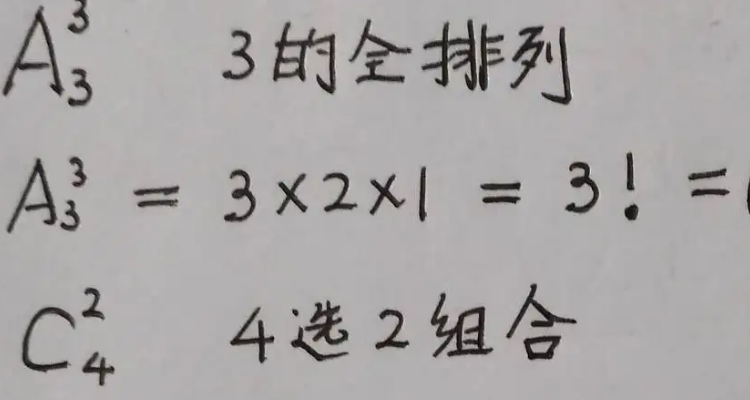 A₃³ 3的全排列
A₃³ = 3×2×1 = 3! =
C₄² 4选2组合